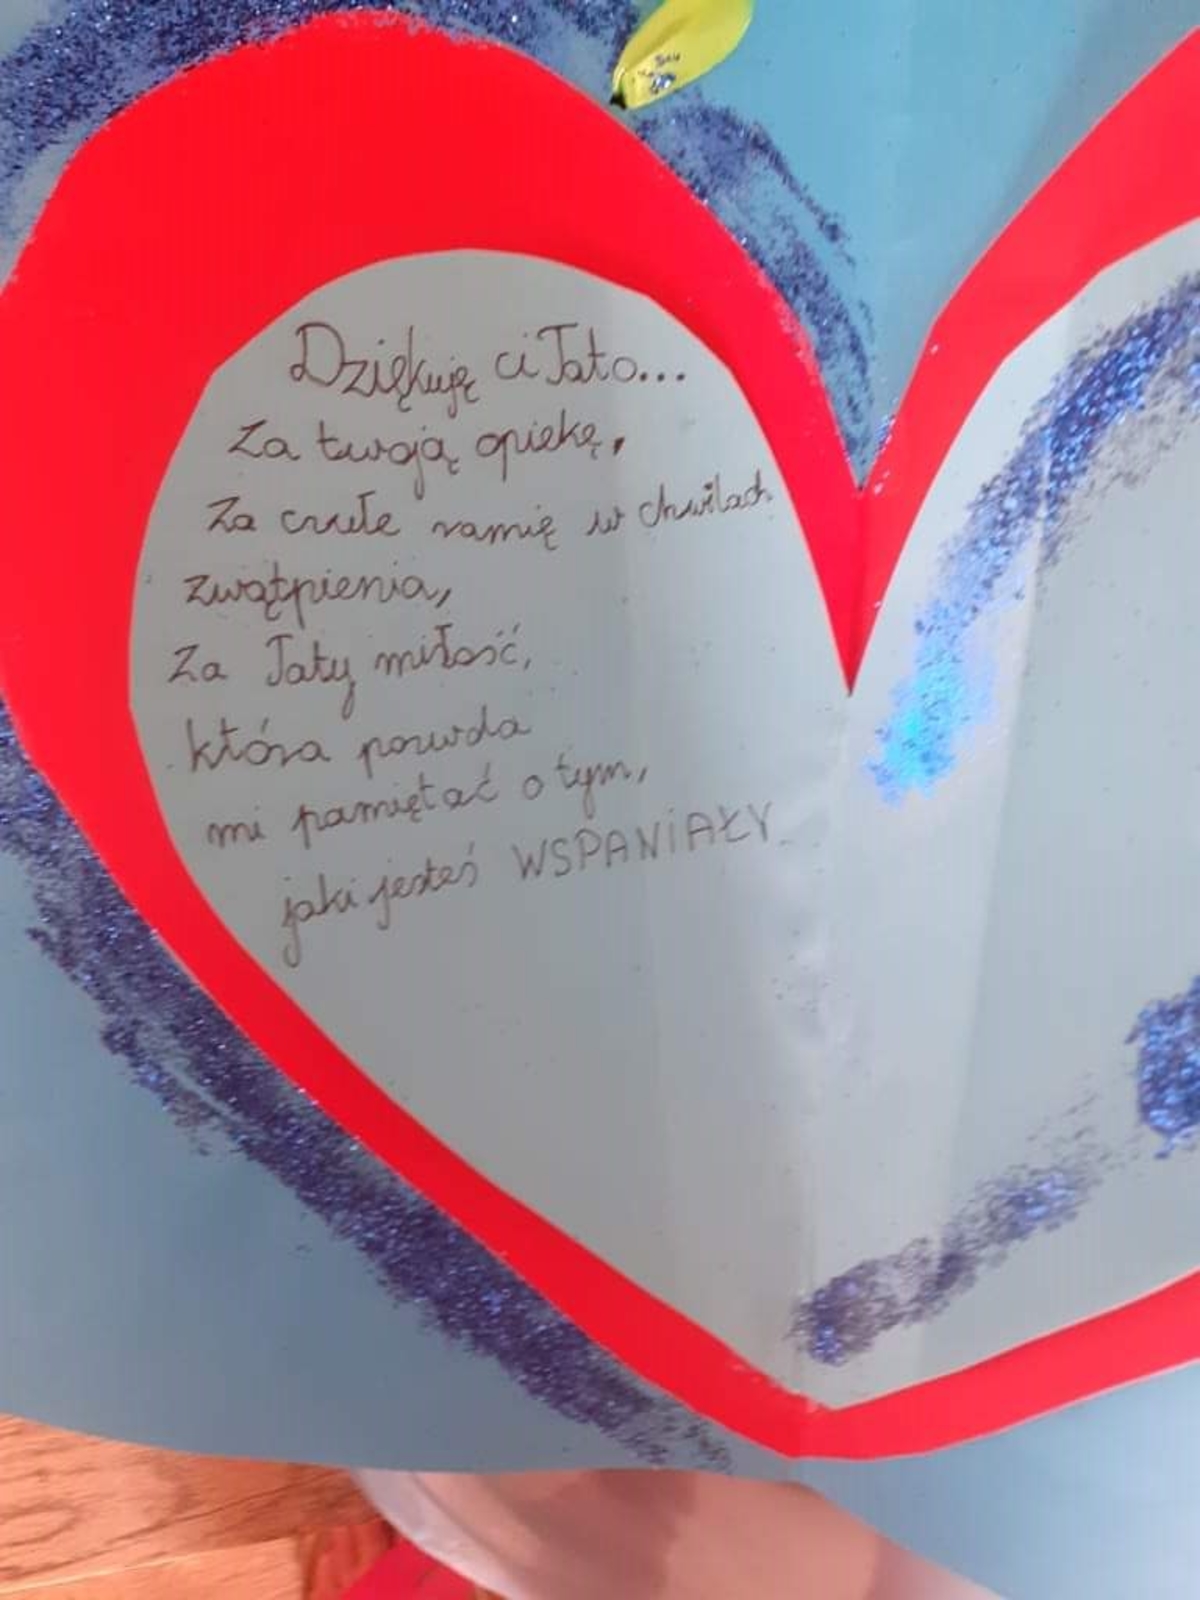 Dziękuję ci Tato...
Za twoją opiekę,
Za czułe ramię w chwilach
zwątpienia,
Za Taty miłość,
która pozwala
mi pamiętać o tym,
jaki jesteś WSPANIAŁY